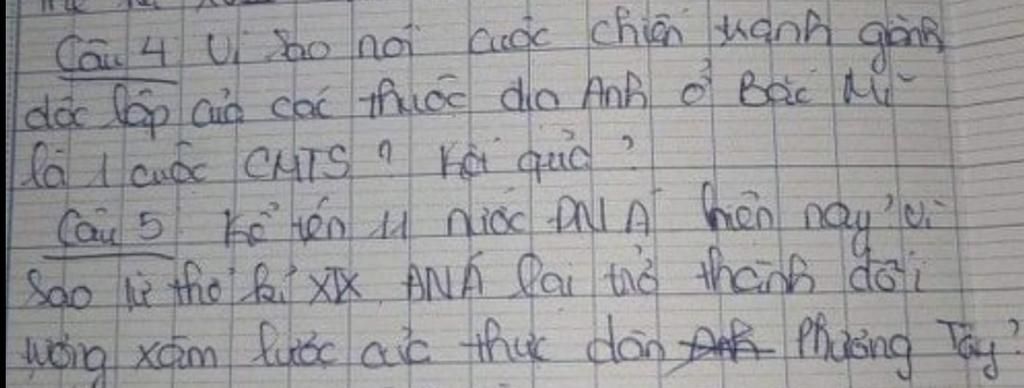 Câu 4 Vì sao nói cuộc chiến tranh giành
độc lập của các thuộc địa Anh ở Bắc Mĩ
là 1 cuộc CMTS ? Kết quả ?
Câu 5 Kể tên 11 nước ĐNA hiện nay? Vì
sao từ thế kỉ XIX ĐNÁ lại trở thành đối
tượng xâm lược của thực dân Anh Phương Tây?